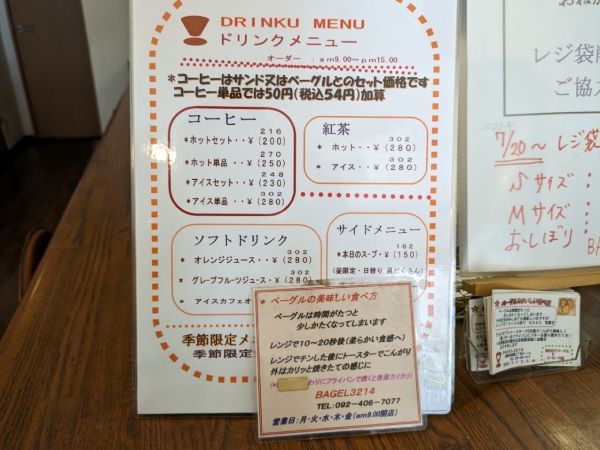 DRINKU MENU
ドリンクメニュー
オーダー : am9.00〜pm15.00
*コーヒーはサンド又はベーグルとのセット価格です
コーヒー単品では50円(税込54円)加算
コーヒー
216
*ホットセット・・¥(200)
270
*ホット単品・・¥(250)
248
*アイスセット・・¥(230)
302
*アイス単品・・¥(280)
紅茶
302
* ホット・・¥(280)
302
* アイス・・¥(280)
ソフトドリンク
302
*オレンジジュース・・¥(280)
302
*グレープフルーツジュース・¥(280)
*アイスカフェオ
サイドメニュー
162
*本日のスープ・¥(150)
(昼限定・日替り、具だくさん)
季節限定メ
季節限定
* ベーグルの美味しい食べ方
ベーグルは時間がたつと
少しかたくなってしまいます
レンジで10〜20秒後(柔らかい食感へ)
レンジでチンした後にトースターでこんがり
外はカリッと焼きたての感じに
わりにフライパンで焼くと表面カリカリ)
BAGEL3214
TEL:092-406-7077
営業日:月・火・水・木・金(am9.00開店)
レジ袋削
ご協力
7/20〜 レジ袋
Sサイズ:
Mサイズ:
おしぼり: